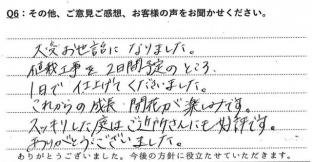 Q6：その他、ご意見ご感想、お客様の声をお聞かせください。
大変お世話になりました。
植栽工事を2日間予定のところ、
1日で仕上げてくださいました。
これからの成長 開花が楽しみです。
スッキリした庭はご近所さんにも好評です。
ありがとうございました。
ありがとうございました。今後の方針に役立たせていただきます。